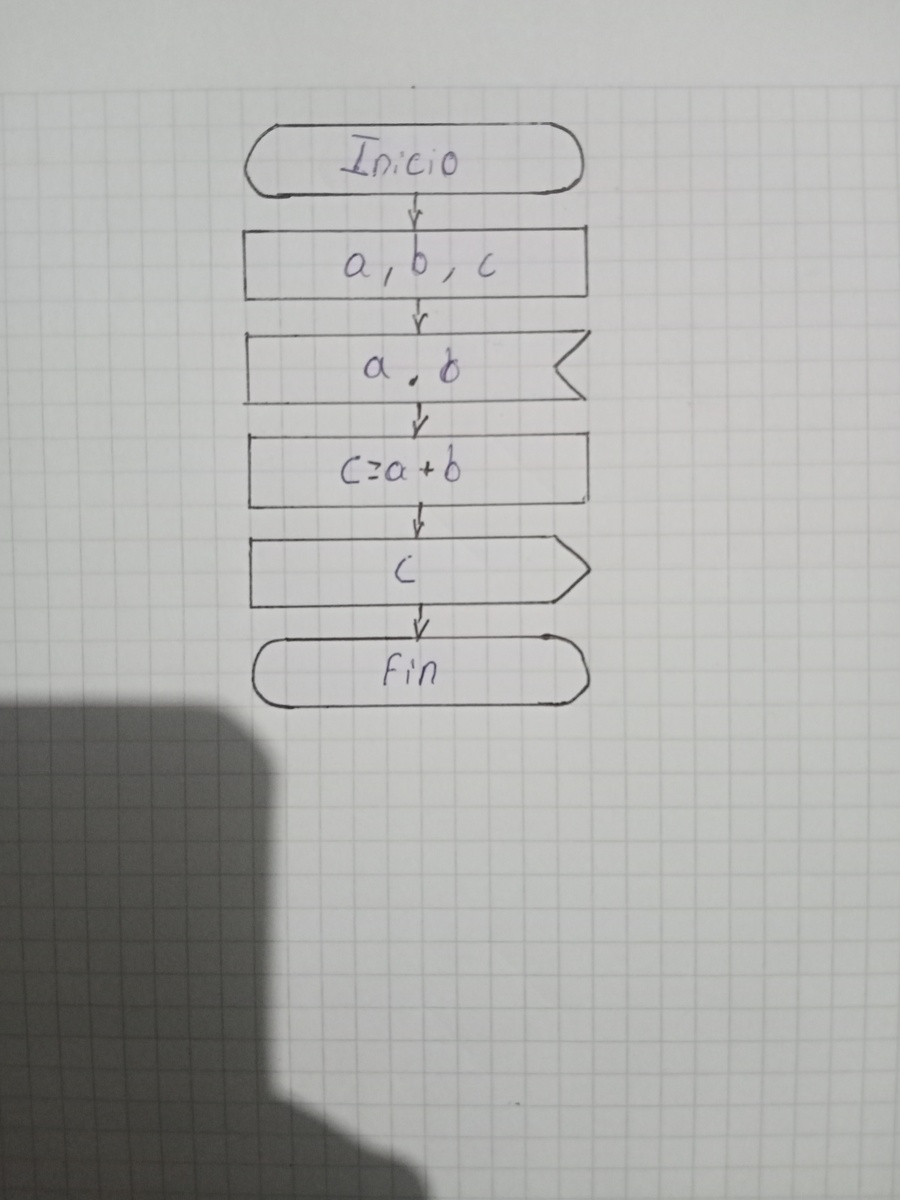 Inicio
a, b, c
a, b
c=a+b
c
Fin